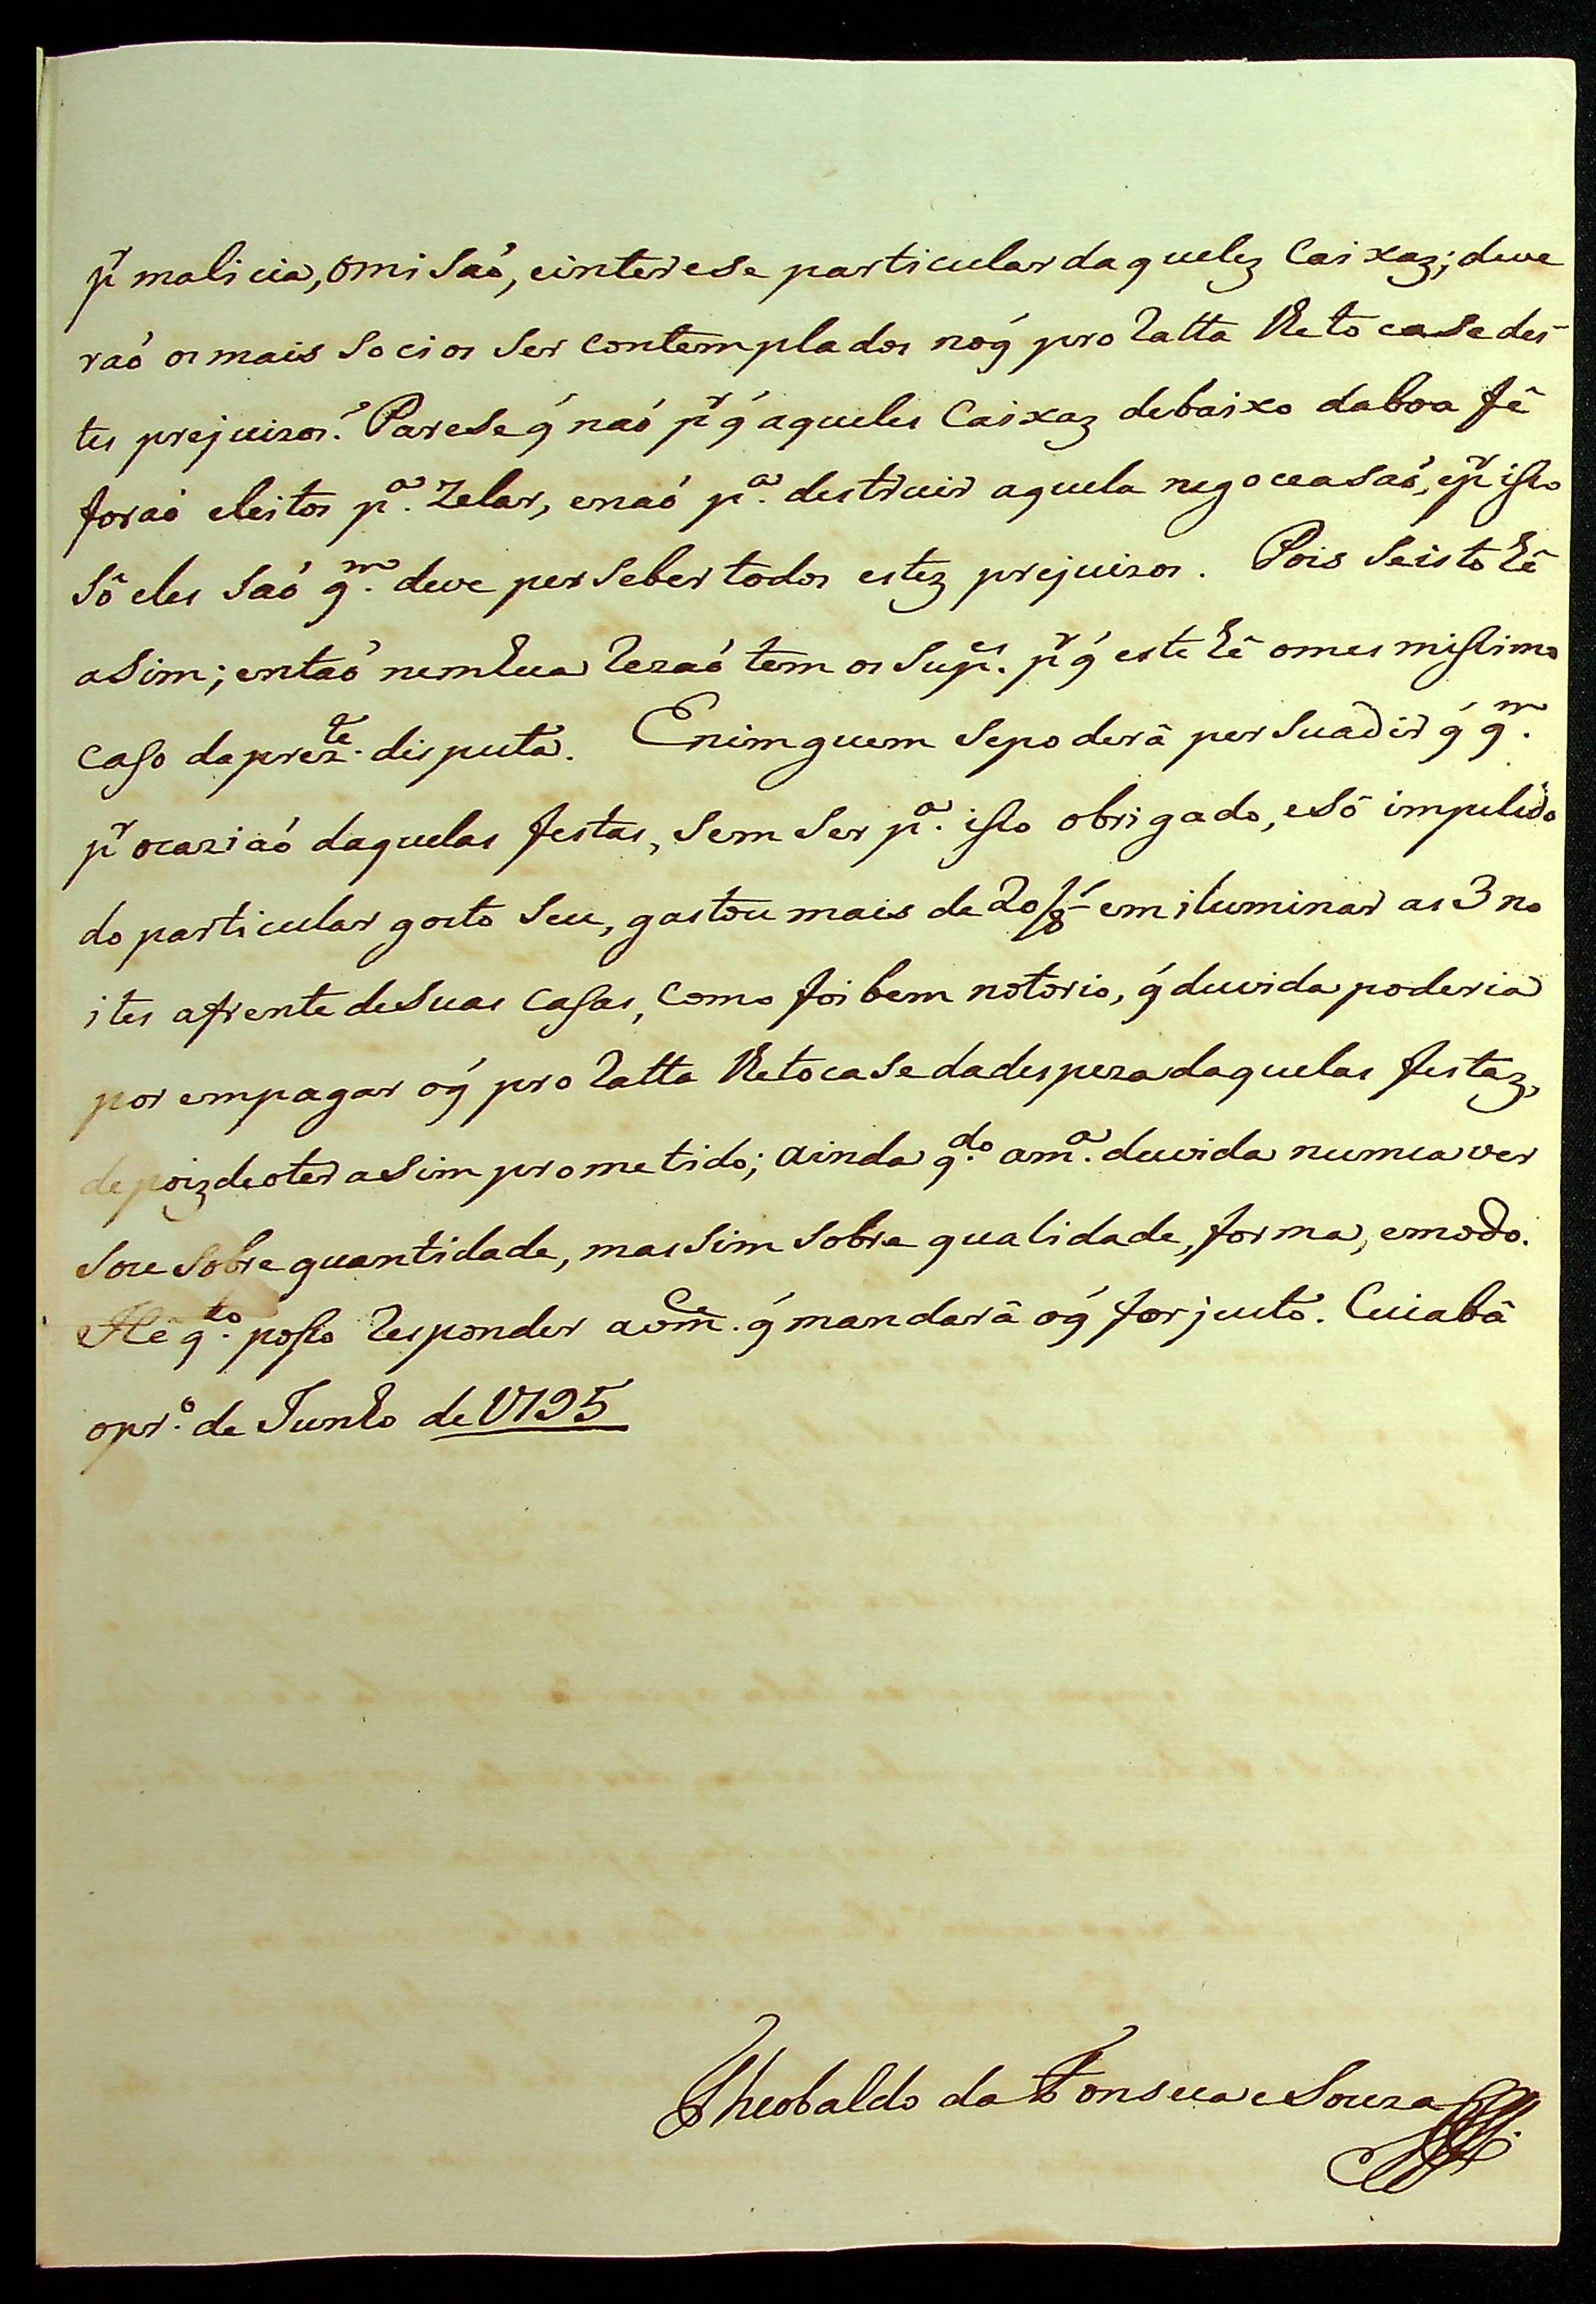 pr̃ malicia, omisaó, einterese particular daquelez Caixaz; deve
raó os mais Socios Ser contemplados noq́ pro Ratta lhe tocase des
tes prejuizos? Parese q́ naó pr̃ q́ aqueles Caixaz debaixo daboa fê
foraó eleitos pª. Zelar, enaó pª. destruir aquela negoceasaó, epr̃ isso
Sô eles Saó qᵐ. deve perSeber todos estez prejuizos. Pois Seisto hê
aSim; entaó nemhua Rezaó tem os Supᵉˢ. pr̃ q́ este hê omesmissimo
caso daprezᵗᵉ. disputa. Enimguem Sepoderâ perSuadir q́ qᵐ.
pr̃ ocaziaó daquelas festas, Sem Ser pª. isso obrigado, eSô impelido
do particular gosto Seu, gastou mais de 20/8ˢ em iluminar as 3 no
ites afrente deSuas casas, Como foi bem notorio, q́ duvida poderia
por empagar oq́ pro Ratta lhe tocase dadespeza daquelas festaz,
depoiz deoter aSim prometido; ainda qᵈᵒ. amª. duvida numca ver
Sou Sobre quantidade, masSim Sobre qualidade, forma, emodo.
Hê qᵗᵒ. posso Responder avmᶜᵉ. q́ mandarâ oq́ for justo. Cuiabâ
oprº. de Junho de 1795
Theobaldo da Fonseca e Souza